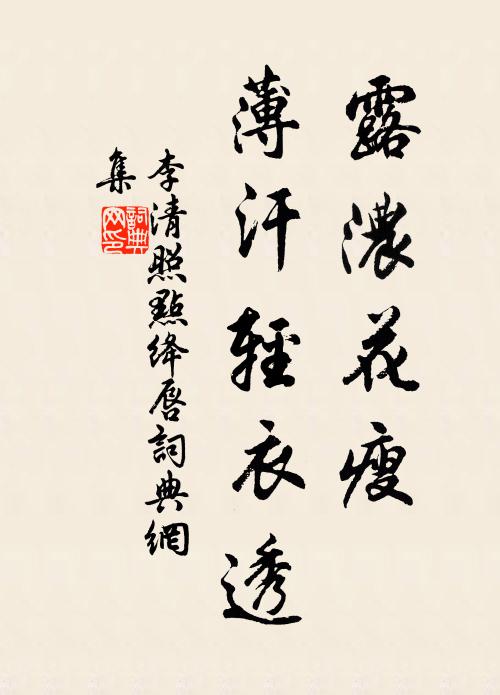 露濃花瘦
薄汗輕衣透
李清照點絳唇詞典網
集
詞典
网印